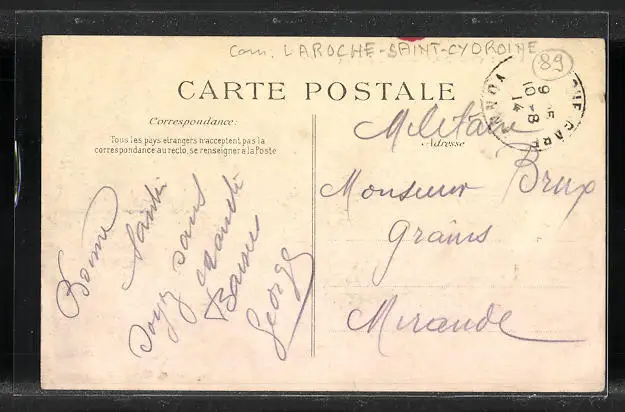 Com. LAROCHE-SAINT-CYDROINE
89
CARTE POSTALE
Correspondance:
Tous les pays étrangers n'acceptent pas la
correspondance au recto, se renseigner à la Poste
Adresse
YONNE
9 - 15
10 - 8
14
Bonne
Santé
soyez sans
crainte
Baisers
George
Militaire
Monsieur Brux
grains
Mirande